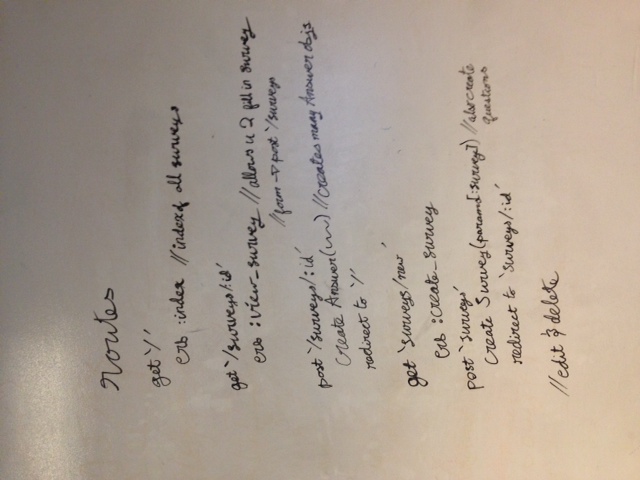 routes
get '/'
erb :index //index of all surveys
get '/surveys/:id'
erb :view_survey //allows u 2 fill in survey
//form -> post '/surveys
post '/surveys/:id'
Create Answer(~~) //Creates many Answer objs
redirect to '/'
get 'surveys/new'
erb :create_survey
post 'surveys'
Create Survey(params[:survey]) //also create
questions
redirect to 'surveys/:id'
//edit & delete